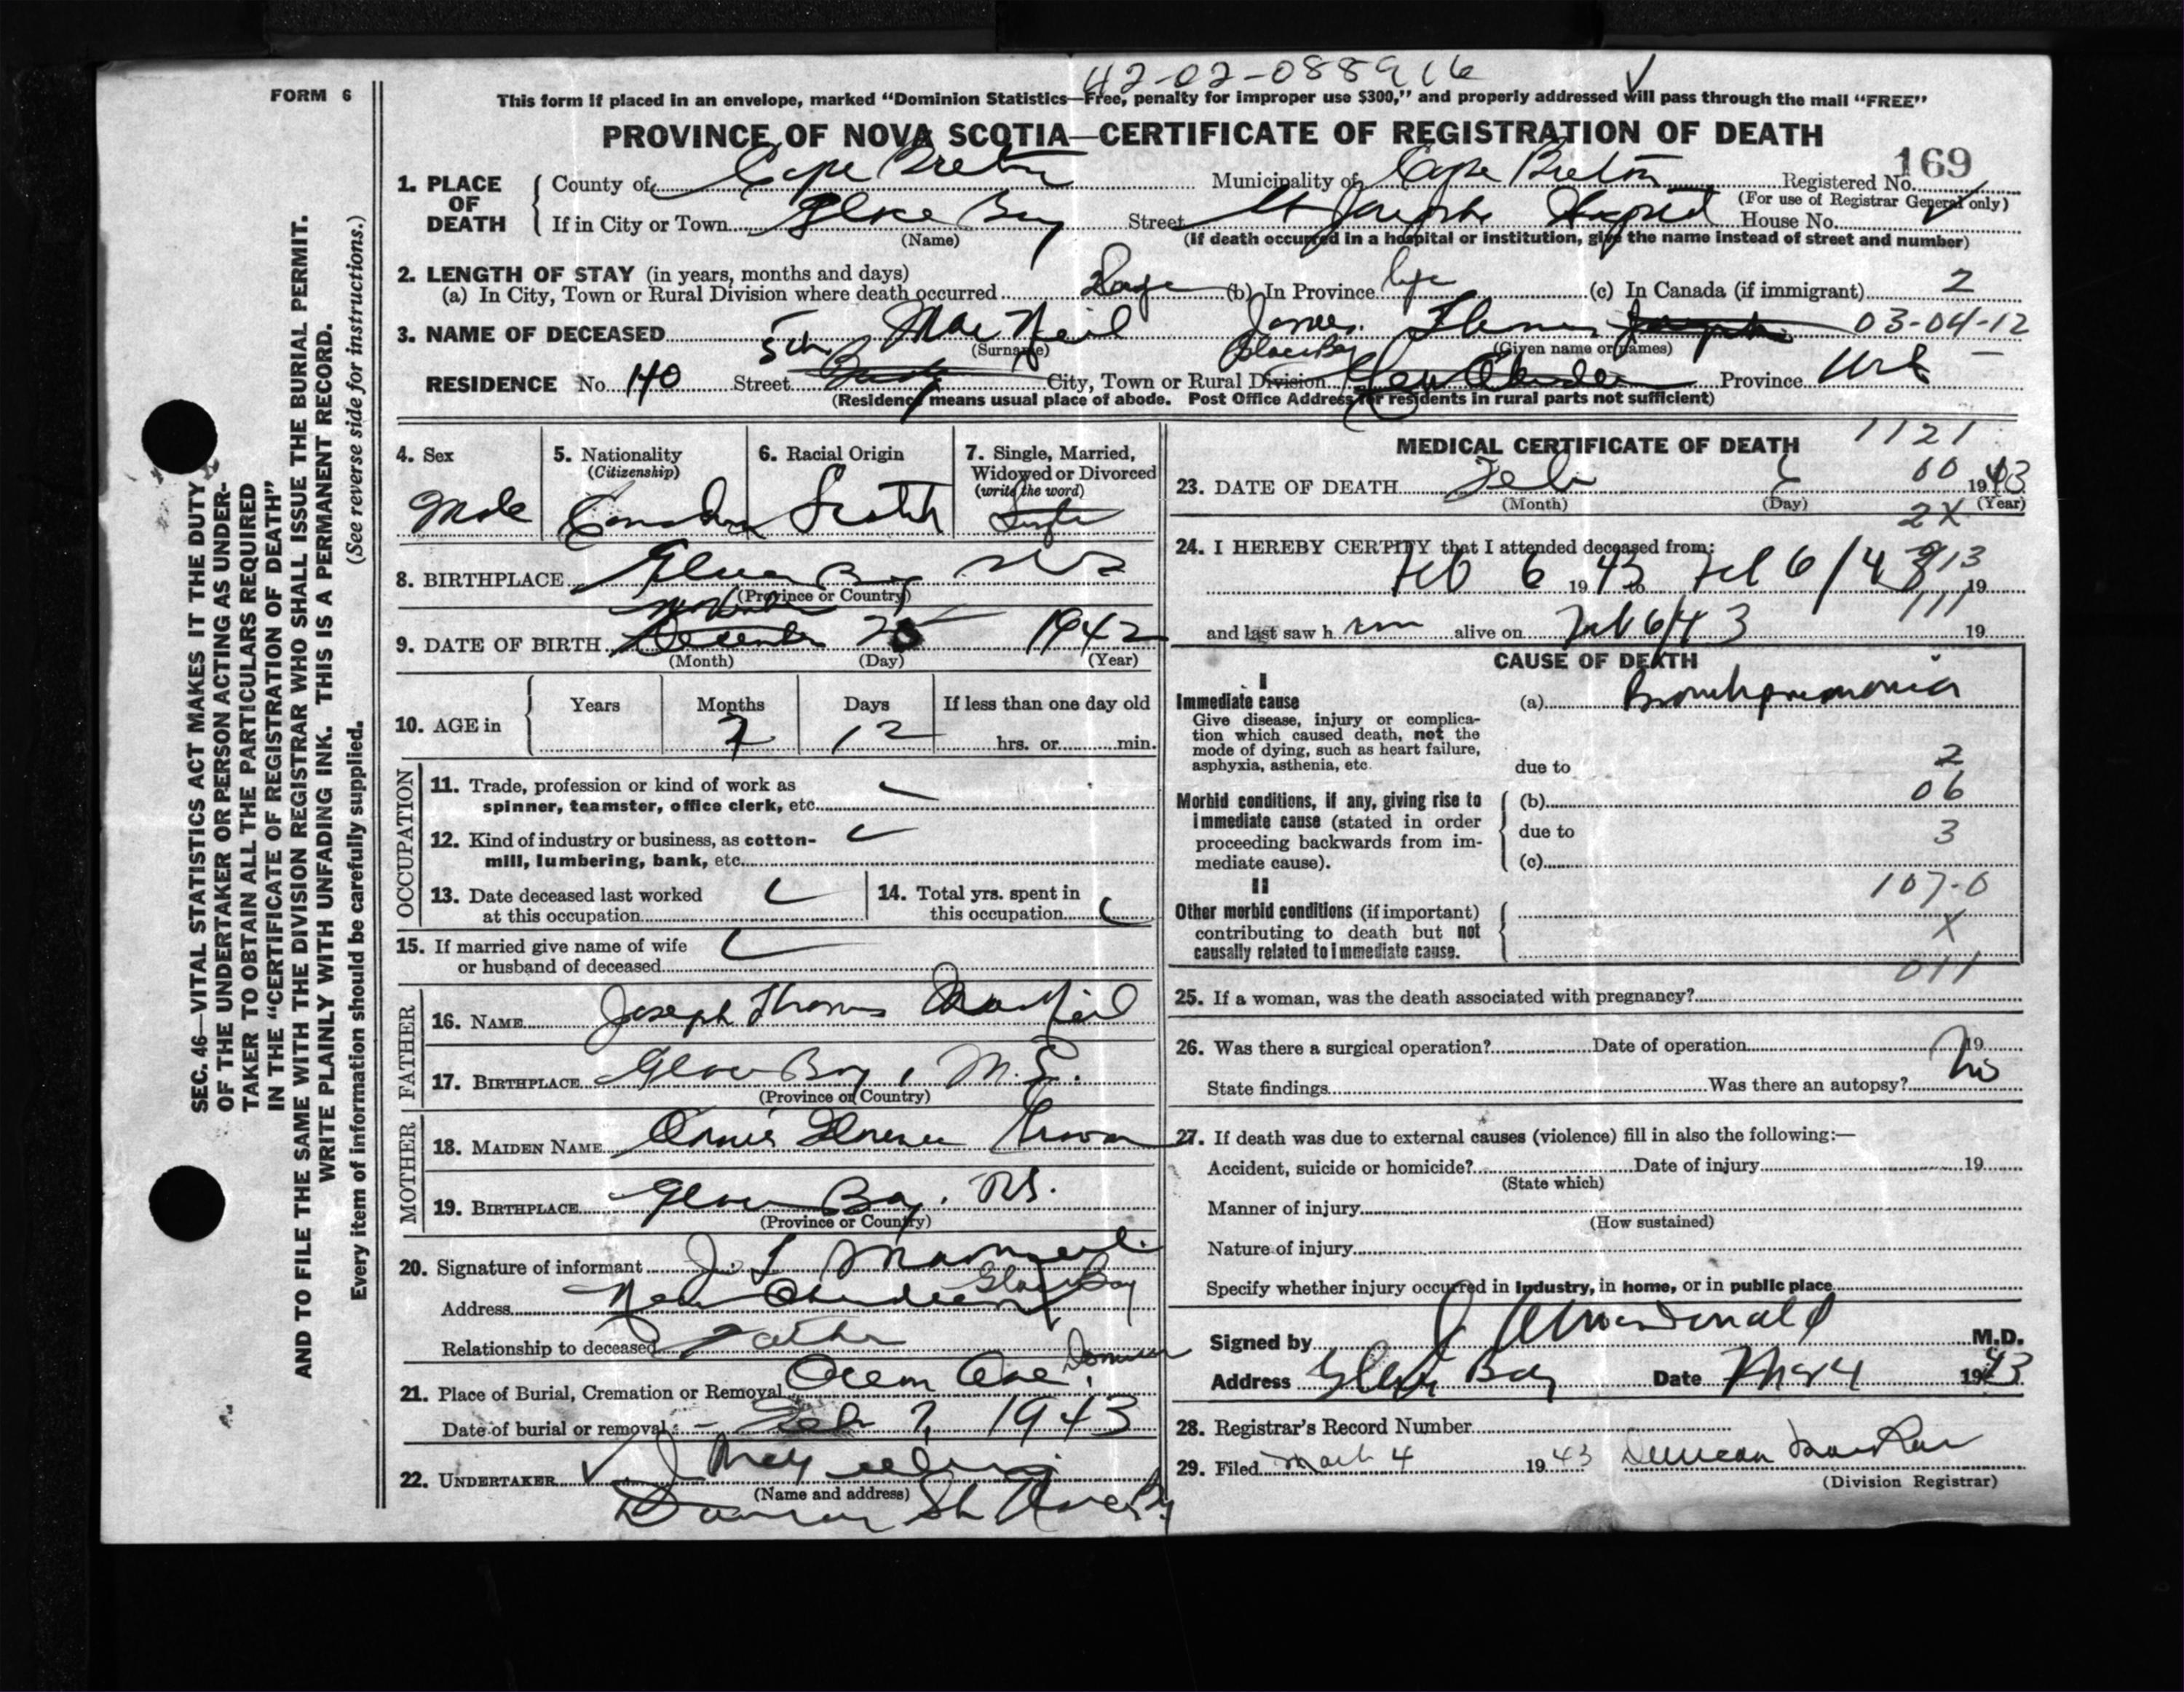 42-02-088916
FORM 6
This form if placed in an envelope, marked "Dominion Statistics—Free, penalty for improper use $300," and properly addressed will pass through the mail "FREE"
PROVINCE OF NOVA SCOTIA—CERTIFICATE OF REGISTRATION OF DEATH
169
1. PLACE OF DEATH
County of Cape Breton Municipality of Cape Breton Registered No.
(For use of Registrar General only)
If in City or Town Glace Bay Street St Josephs Hospital House No.
(Name) (If death occurred in a hospital or institution, give the name instead of street and number)
2. LENGTH OF STAY (in years, months and days)
(a) In City, Town or Rural Division where death occurred (b) In Province life (c) In Canada (if immigrant) 2
3. NAME OF DECEASED MacNeil James Thomas Joseph 03-04-12
(Surname) (Given name or names)
5th Glace Bay
RESIDENCE No. 140 Street City, Town or Rural Division New Aberdeen Province
(Residence means usual place of abode. Post Office Address for residents in rural parts not sufficient)
4. Sex Male
5. Nationality (Citizenship) Canadian
6. Racial Origin Scotch
7. Single, Married, Widowed or Divorced (write the word) Single
8. BIRTHPLACE Glace Bay NS
(Province or Country)
November
9. DATE OF BIRTH December 25 1942
(Month) (Day) (Year)
10. AGE in Years Months Days If less than one day old
2 12 hrs. or min.
OCCUPATION
11. Trade, profession or kind of work as spinner, teamster, office clerk, etc.
12. Kind of industry or business, as cotton-mill, lumbering, bank, etc.
13. Date deceased last worked at this occupation
14. Total yrs. spent in this occupation
15. If married give name of wife or husband of deceased
FATHER
16. NAME Joseph Thomas MacNeil
17. BIRTHPLACE Glace Bay, N.S.
(Province or Country)
MOTHER
18. MAIDEN NAME Annie Florence
19. BIRTHPLACE Glace Bay. NS.
(Province or Country)
20. Signature of informant J. T. MacNeil
Address New Aberdeen Glace Bay
Relationship to deceased Father
21. Place of Burial, Cremation or Removal Ocean Ave, Dominion
Date of burial or removal Feb 7, 1943
22. UNDERTAKER
(Name and address)
MEDICAL CERTIFICATE OF DEATH 1121
23. DATE OF DEATH Feb 6 00 1943
(Month) (Day) (Year)
2X
24. I HEREBY CERTIFY that I attended deceased from:
Feb 6 1943 to Feb 6/43 19
913
111
and last saw h im alive on Feb 6/43 19
CAUSE OF DEATH
I
Immediate cause
Give disease, injury or complication which caused death, not the mode of dying, such as heart failure, asphyxia, asthenia, etc.
(a) Bronchopneumonia
due to 2
Morbid conditions, if any, giving rise to immediate cause (stated in order proceeding backwards from immediate cause).
(b) 06
due to 3
(c)
II
107-0
Other morbid conditions (if important) contributing to death but not causally related to immediate cause.
X
011
25. If a woman, was the death associated with pregnancy?
26. Was there a surgical operation? Date of operation 19
State findings Was there an autopsy? No
27. If death was due to external causes (violence) fill in also the following:—
Accident, suicide or homicide? Date of injury 19
(State which)
Manner of injury
(How sustained)
Nature of injury
Specify whether injury occurred in industry, in home, or in public place
Signed by J A MacDonald M.D.
Address Glace Bay Date Mar 4 1943
28. Registrar's Record Number
29. Filed March 4 1943 Duncan
(Division Registrar)
SEC. 46—VITAL STATISTICS ACT MAKES IT THE DUTY
OF THE UNDERTAKER OR PERSON ACTING AS UNDER-
TAKER TO OBTAIN ALL THE PARTICULARS REQUIRED
IN THE "CERTIFICATE OF REGISTRATION OF DEATH"
AND TO FILE THE SAME WITH THE DIVISION REGISTRAR WHO SHALL ISSUE THE BURIAL PERMIT.
WRITE PLAINLY WITH UNFADING INK. THIS IS A PERMANENT RECORD.
Every item of information should be carefully supplied. (See reverse side for instructions.)